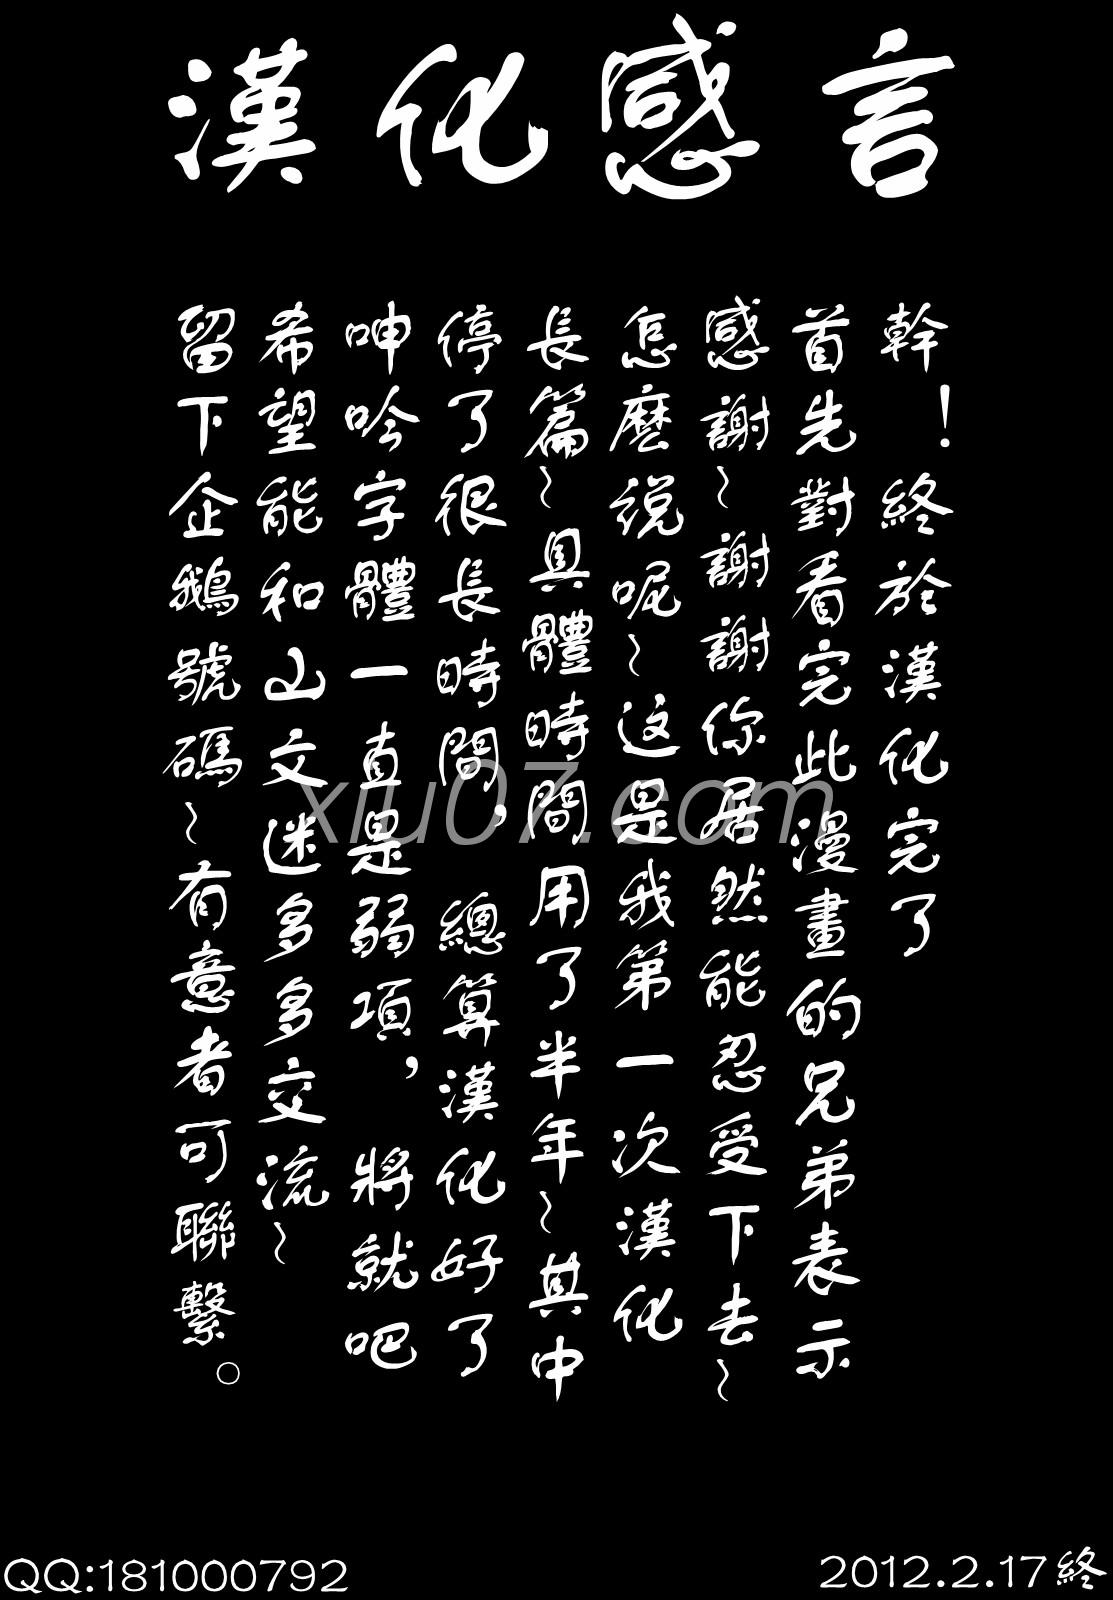 漢化感言
幹！終於漢化完了
首先對看完此漫畫的兄弟表示
感謝~謝謝你居然能忍受下去~
怎麼説呢~这是我第一次漢化
長篇~具體時間用了半年~其中
停了很長時間，總算漢化好了
呻吟字體一直是弱項，將就吧
希望能和山文迷多多交流~
留下企鵝號碼~有意者可聯繫。
xiu07.com
QQ:181000792
2012.2.17終